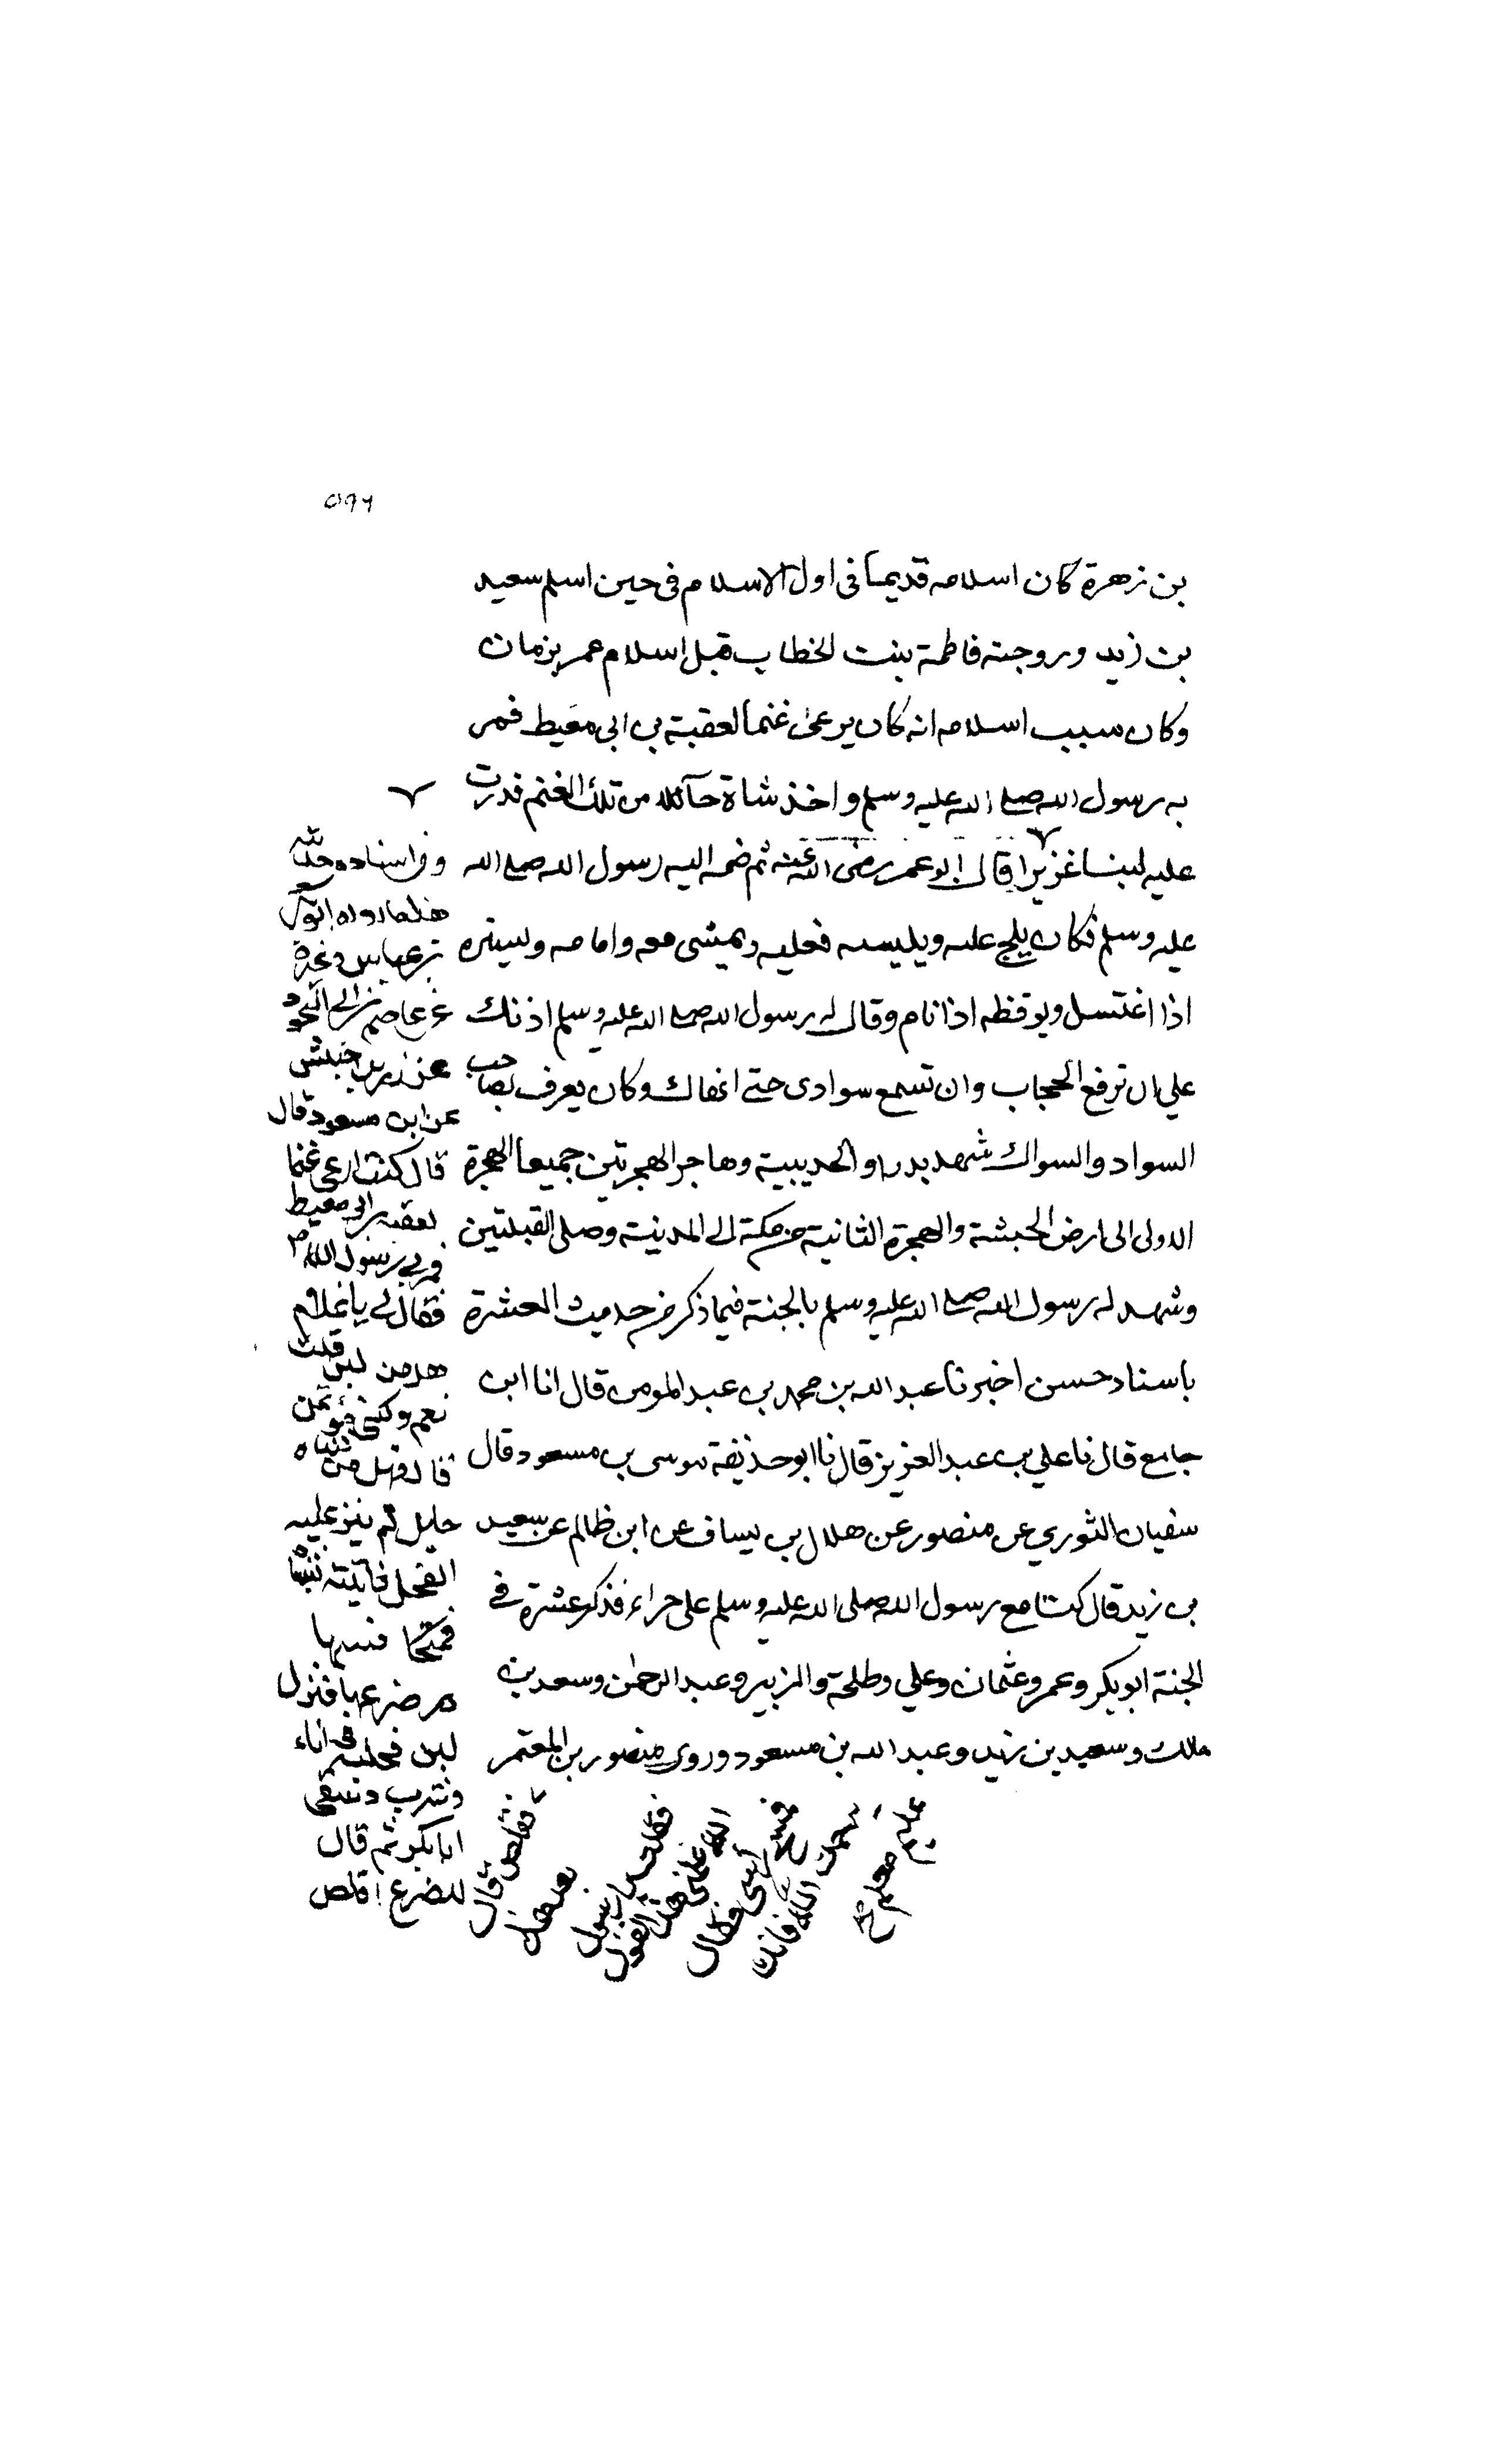 ٥٩٦
بن زهرة كان اسلامه قديما فى اول الاسلام فى حين اسلم سعيد
بن زيد وزوجته فاطمة بنت الخطاب قبل اسلام عمر بزمان
وكان سبب اسلامه انه كان يرعى غنما لعقبة بن ابى معيط فمر
به رسول الله صلى الله عليه وسلم واخذ شاة حآئلا من تلك الغنم فدرت
عليه لبنا غزيرا قال ابو عمر رضى الله عنه ثم ضمه اليه رسول الله صلى الله
عليه وسلم فكان يلج عليه ويلبسه نعليه ويمشى معه وامامه ويستره
اذا اغتسل ويوقظه اذا نام وقال له رسول الله صلى الله عليه وسلم اذنك
علي ان ترفع الحجاب وان تسمع سوادى حتى انهاك وكان يعرف بصاحب
السواد والسواك شهد بدرا والحديبية وهاجر الهجرتين جميعا الهجرة
الاولى الى ارض الحبشة والهجرة الثانية من مكة الى المدينة وصلى القبلتين
وشهد له رسول الله صلى الله عليه وسلم بالجنة فيما ذكر فى حديث العشرة
باسناد حسن اخبرنا عبد الله بن محمد بن عبد المومن قال انا ابن
جامع قال نا علي بن عبد العزيز قال نا ابو حذيفة موسى بن مسعود قال
سفيان الثوري عن منصور عن هلال بن يساف عن ابن ظالم عن سعيد
بن زيد قال كنا مع رسول الله صلى الله عليه وسلم على حراء فذكر عشرة فى
الجنة ابو بكر وعمر وعثمان وعلي وطلحة والزبير وعبد الرحمن وسعد بن
مالك وسعيد بن زيد وعبد الله بن مسعود وروى منصور بن المعتمر
وفى اسناده
هذا ما رواه ابو بكر
بن عياش وغيره
عن عاصم بن ابى النجود
عن زر بن حبيش
عن ابن مسعود قال
قال كنت ارعى غنما
لعقبة بن ابى معيط
فمر بى رسول الله
فقال لى يا غلام
هل من لبن قلت
نعم ولكنى مؤتمن
قال فهل من شاة
حايل لم ينز عليه
الفحل فاتيته بشاة
فمسح
ضرعها فنزل
لبن فحلبه فى اناء
وشرب وسقى
ابا بكر ثم قال
للضرع اقلص
فقلص قال
ثم اتيته بعد هذا
فقلت يا رسول
الله علمنى هذا القول
فمسح راسى فقال
يرحمك الله فانك
عليم معلم